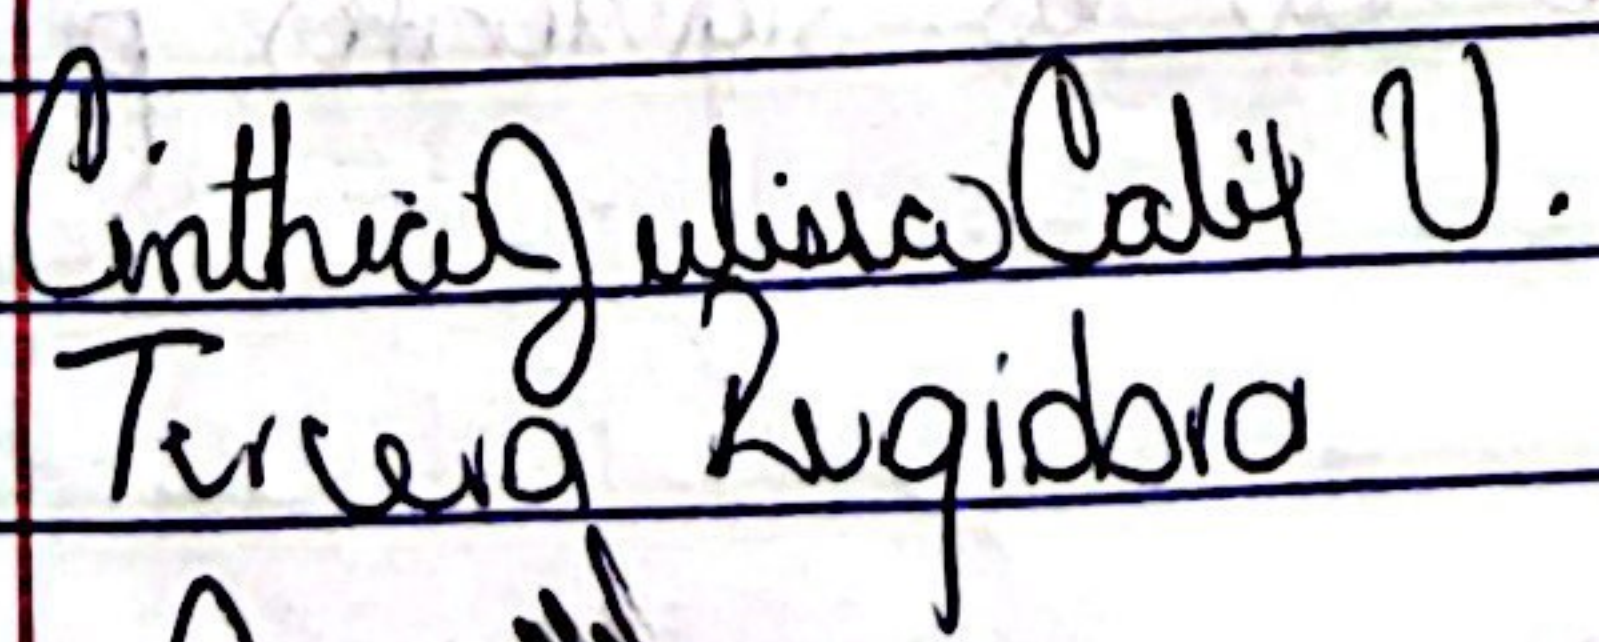 Cinthia Julissa Calix V.
Tercera Regidora